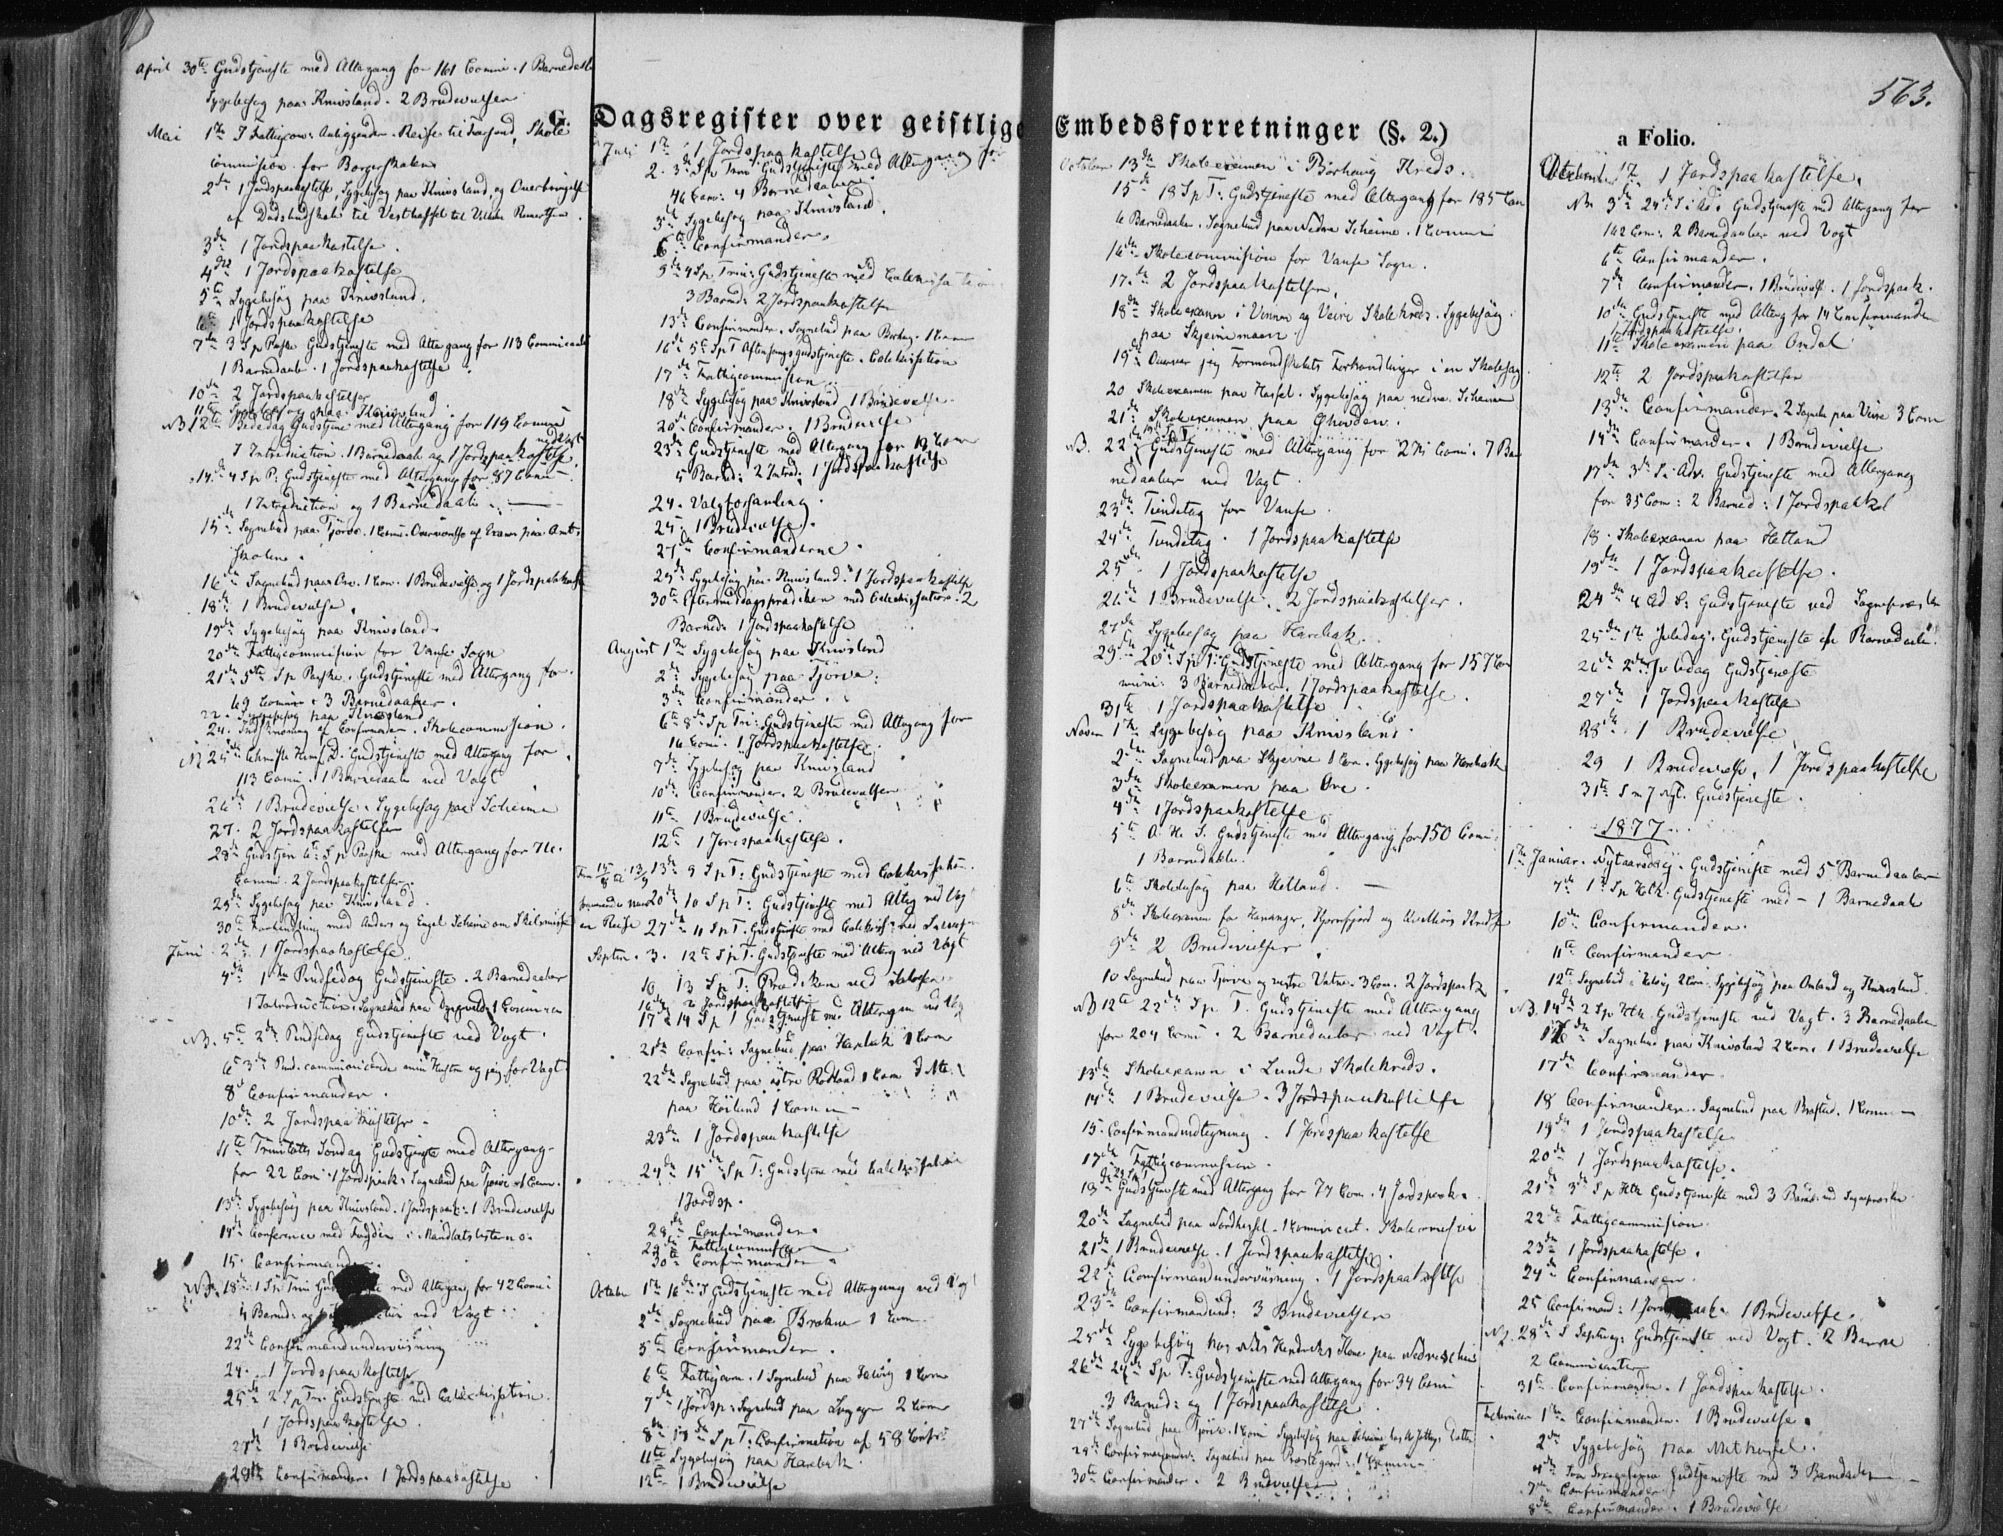 563.
G. Dagsregister over geistlige Embedsforretninger (§. 2.)
a Folio.
April 30te Gudstjeneste med Altergang for 161 Comm. 1 Barnedaab
Sygebesøg paa Knivsland. 2 Brudevielser
Mai 1te I Fattigcom: Anliggender. Reise til Farsund, Skole
commission for Borgerskolen
2den 1 Jordspaakastelse, Sygebesøg paa Knivsland og Overbringelse
af Dødsbudskab til Vesthassel til
3die 1 Jordspaakastelse.
4de 1 Jordspaakastelse
5te Sygebesøg paa Knivsland.
6te 1 Jordspaakastelse
7de 3 S p Paaske Gudstjeneste med Altergang for 113 Communicanter
1 Barnedaab. 1 Jordspaakastelse
10de 2 Jordspaakastelser
11te Sygebesøg paa Knivsland
NB 12te Bededag Gudstjene med Altergang for 119 Comm
1 Introduction. 1 Barnedaab og 1 Jordspaakastelse
14de 4 S p P: Gudstjeneste med Altergang for 87 Comm
1 Introduction og 1 Barnedaab
15de Sognebud paa Tjørve. 1 Comm. Overværelse af Examen paa Amts
skolen.
16de Sognebud paa Ore. 1 Com. 1 Brudevielse og 1 Jordspaakast
18de 1 Brudevielse.
19de Sygebesøg paa Knivsland
20de Fattigcommission for Vanse Sogn
21de 5te S p Paaske. Gudstjeneste med Altergang for
69 Comm. 3 Barnedaaber.
22. Sygebesøg paa Knivsland
24. Indskrivning af Confirmander. Skolecommission.
NB 25de Christi Himf. D. Gudstjeneste med Altergang for
113 Comm. 1 Barnedaab ved Vogt
26de 1 Brudevielse. Sygebesøg paa Scheime
27. 2 Jordspaakastelser
28de Gudstjen 6te S p Paaske med Altergang for 76
Comm. 2 Jordspaakastelser.
29de Sygebesøg paa Knivsland
30te Forhandling med Anders og Engel Scheime om Skilsmisse
Juni 2den 1 Jordspaakastelse.
4de 1ste Pindsedag Gudstjeneste. 2 Barnedaaber
1 Introduction. Sognebud paa 1 Communican
NB. 5te 2den Pindsedag Gudstjeneste ved Vogt.
6te 3die Pind. communicerede min Hustru og jeg for Vogt
8de Confirmander.
10de 2 Jordspaakastelser
11te Trinitatis Søndag Gudstjeneste med Altergang
for 22 Com. 1 Jordspaak: Sognebud paa Tjørve 1 Comm.
13de Sygebesøg paa Knivsland. 1 Jordspaak: 1 Brudevielse
14de Conference med Fogden i Mandtalslisterne.
15. Confirmander.
NB. 18de 1 S p Trin Gud med Altergang for 42 Comm:
4 Barned: og ved Vogt
22de Confirmandundervisning
24. 1 Jordspaakastelse
25de 2 S p Tri: Gudstjeneste med Catechisation.
1 Jordspaakastelse.
27de 1 Brudevielse
28de Confirmander. 1 Jordspaakastelse
Juli 1ste 1 Jordspaakastelse
2. 3die S p Trin: Gudstjeneste med Altergang for
46 Com: 4 Barnedaaber
3de Sygebesøg paa Knivsland.
6te Confirmander.
9de 4 S p Trin: Gudstjeneste med Catechisation
3 Barned: 2 Jordspaakastelser
13de Confirmander. Sognebud paa Borhaug. 1 Com
16de 5te S p T Aftensangsgudstjeneste. Catechisation
17de Fattigcommission
18de Sygebesøg paa Knivsland 1 Brudevielse.
20de Confirmander. 1 Brudevielse
23de Gudstjeneste med Altergang for 12 Com
5 Barned: 2 Introd: 1 Jordspaakastelse
24. Valgforsamling.
25de 1 Brudevielse.
27de Confirmanderne.
29de Sygebesøg paa Knivsland. 1 Jordspaakastelse
30te Eftermiddagsprædiken med Catechisation. 2
Barned: 1 Jordspaakastelse
August 1ste Sygebesøg paa Knivsland
2den Sygebesøg paa Tjørve:
3die Confirmander.
6te 8de S p Tri: Gudstjeneste med Altergang for
16 Comm. 1 Jordspaakastelse.
7de Sygebesøg paa Knivsland
10de Confirmander. 2 Brudevielser
11te 1 Brudevielse.
12te 1 Jordspaakastelse.
Fra 15/8 til 13/9 13de 9 S p T: Gudstjeneste med Catechisation
20de 10 S p T: Gudstjeneste med Alterg ved Vogt
en Reise 27de 11 S p T. Gudstjeneste med Catechis: ved
Septem. 3. 12te S p T. Gudstjeneste med Alterg ved Vogt
10 13 S p T: Prædiken ved
16de 2 Jordspaakastelser
17de 14 S p T Gudstjeneste med Altergan ved Vogt
21de Confir: Sognebud paa Harebak 1 Com
22de Sognebud paa østre Rødland 1 Com
paa Høiland 1 Comm
23de 1 Jordspaakastelse
24de 15de S p T: Gudstjene med Catechisation
1 Jordsp.
28de Confirmander.
29de Fattigcommission
30te Confirmander
October 1ste 16de S Gudstjeneste med Altergang ved Vogt
2den Sognebud paa Brekne 1 Com
5te Confirmander.
6te Fattigcom. 1 Sognebud paa Helvig 1 Com
7de 1 Jordsp: Sognebud paa 2 Com
8de 17de S p T: Confirmation af 58 Confir
11te Sygebesøg paa Harebak
12te 1 Brudevielse
October 13de Skoleexamen i Borhaug Kreds.
15de 18 S p T: Gudstjeneste med Altergang for 185 Com
6 Barnedaaber. Sognebud paa Nedre Scheime. 1 Comm
16de Skolecommission for Vanse Sogn.
17de 2 Jordspaakastelser.
18de Skoleexamen i Vinnem og Veire Skolekreds. Sygebesøg
paa Skjeimemoen
19de Overvar jeg Formandskabets Forhandlinger i en Skolesag
20 Skoleexamen paa Hassel. Sygebesøg paa nedre Scheime
21de Skoleexamen paa Ohovden.
NB. 22de Gudstjeneste med Altergang for Comm. 7 Bar
nedaaber ved Vogt.
23de Tiendetag for Vanse
24de Tiendetag. 1 Jordspaakastelse
25de 1 Jordspaakastelse
26de 1 Brudevielse. 2 Jordspaakastelser.
27de Sygebesøg paa Harebak.
29de 20de S p T: Gudstjeneste med Altergang for 157 Com
muni: 3 Barnedaaber. 1 Jordspaakastelse.
31te 1 Jordspaakastelse
Novem 1ste Sygebesøg paa Knivsland.
2den Sognebud paa Skjeime 1 Com. Sygebesøg paa Harebak
3die Skoleexamen paa Ore.
4de 1 Jordspaakastelse
5te A. H. S. Gudstjeneste med Altergang for 150 Comm:
1 Barnedaab.
6te Skolebesøg paa Hetland.
8de Skoleexamen for Hananger, og Kredse
9de 2 Brudevielser
10 Sognebud paa Tjørve og vestre Vatne. 3 Com. 2 Jordspaak
NB 12te 22de S p T. Gudstjeneste med Altergang
for 204 Comm. 2 Barnedaaber ved Vogt.
13de Skoleexamen i Lunde Skolekreds.
14de 1 Brudevielse. 3 Jordspaakastelse
15. Confirmandudtegning. 1 Jordspaakastelse
17de Fattigcommission.
19de Gudstjeneste med Altergang for 77 Com. 4 Jordspaak.
20de Sognebud paa Nordhassel. 1 Communicant. Skolecommission
21de 1 Brudevielse. 1 Jordspaakastelse.
22de Confirmandundervisning. 1 Jordspaakastelse
23de Confirmandund: 3 Brudevielser
25de Sygebesøg hos Nils Hendriks Kone paa Nedre Scheime
26de 24de S p T: Gudstjeneste med Altergang for 34 Comm
3 Barned: og 1 Jordspaakastelse.
27de Sognebud paa Tjørve. 1 Comm Sygebesøg paa Scheime
29de Confirmander. Sognebud paa Præstegaard. 1 Comm
30te Confirmander. 2 Brudevielser
December 1ste 1 Jordspaakastelse.
NB 3die S i Ad. Gudstjeneste med Altergang for
142 Com: 2 Barnedaaber ved Vogt
6te Confirmander.
7de Confirmander. 1 Brudevielse. 1 Jordspaak.
10de Gudstjeneste med Alterg for 14 Confirmander
1 Jordspaakastelse.
11te Skoleexamen paa Omdal
12te 2 Jordspaakastelser
13de Confirmander. 2 Sogneb paa Veire 3 Com
14de Confirmander. 1 Brudevielse
17de 3die S. i Adv. Gudstjeneste med Altergang
for 35 Com: 2 Barned: 1 Jordspaakst
18. Skoleexamen paa Hetland
19de 1 Jordspaakastelse.
24de 4 Ad S: Gudstjeneste ved Sognepræsten
25de 1ste Juledag. Gudstjeneste Barnedaab
26de 2den Juledag Gudstjeneste
27de 1 Jordspaakastelse
28de 1 Brudevielse
29 1 Brudevielse, 1 Jordspaakastelse
31te S m J og N. Gudstjeneste.
1877.
1ste Januar. Nytaarsdag. Gudstjeneste med 5 Barnedaaber
7de 1 S p Htk Gudstjeneste med 1 Barnedaab
10de Confirmander.
11te Confirmander
12te Sognebud i Helvig 2 Com. Sygebesøg paa Omland og Knivsland.
NB. 14de 2 S p Htk. Gudstjeneste ved Vogt. 3 Barnedaaber
16de Sognebud paa Knivsland 2 Com. 1 Brudevielse
17de Confirmander
18 Confirmander. Sognebud paa Brastad. 1 Comm
19de 1 Jordspaakastelse
20de 1 Jordspaakastelse.
21de 3die S p Htk Gudstjeneste med 3 Barned ved Sognepræsten
22de Fattigcommission.
23de 1 Jordspaakastelse.
24de Confirmander.
25 Confirmand: 1 Jordspaak 1 Brudevielse.
NB. 28de S Septuag: Gudstjeneste ved Vogt. 2 Barne
2 Communicanter
31te Confirmander. 1 Jordspaakastelse.
Februar 1ste Confirmander. 1 Brudevielse.
2den Sygebesøg paa Midthassel.
4de Gudstjeneste med 3 Barnedaaber
7de Confirmander
8de Confirmander. 1 Brudevielse